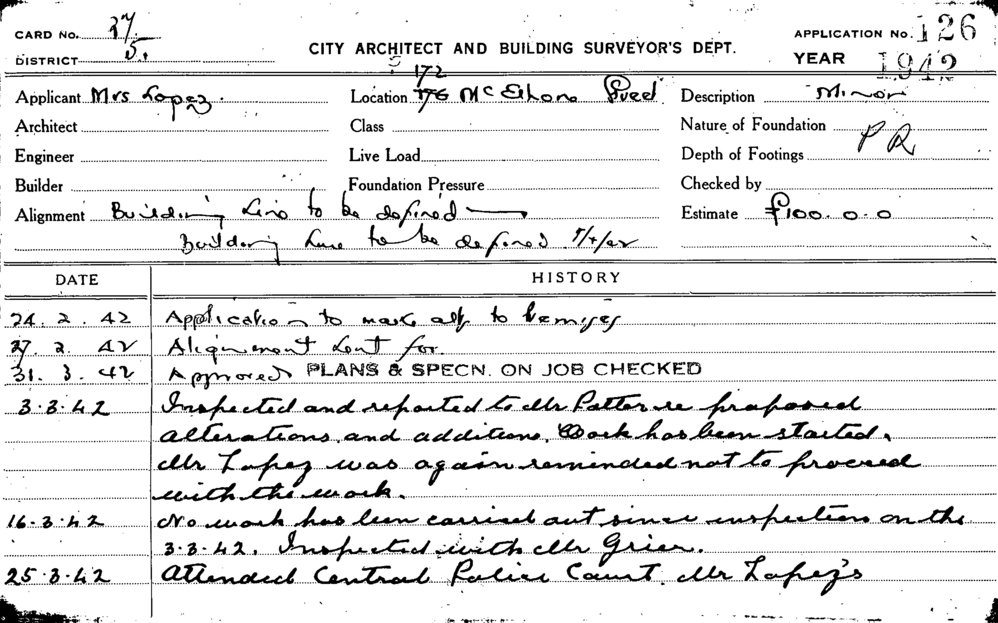 CARD No. 27/5.
APPLICATION No. 126
DISTRICT
CITY ARCHITECT AND BUILDING SURVEYOR'S DEPT.
YEAR 1942
172
Applicant Mrs Lopez. Location 176 McElhone Street Description Minor
Architect Class Nature of Foundation PR
Engineer Live Load Depth of Footings
Builder Foundation Pressure Checked by
Alignment Building Line to be defined Estimate £100.0.0
Building Line to be defined
DATE HISTORY
24.2.42 Application to make alt to premises
27.2.42 Alignment sent for.
31.3.42 Approved PLANS & SPECN. ON JOB CHECKED
3.3.42 Inspected and reported to Mr Potter re proposed
alterations and additions. Work has been started.
Mr Lopez was again reminded not to proceed
with the work.
16.3.42 No work has been carried out since inspection on the
3.3.42. Inspected with Mr Grier.
25.3.42 Attended Central Police Court. Mr Lopez's